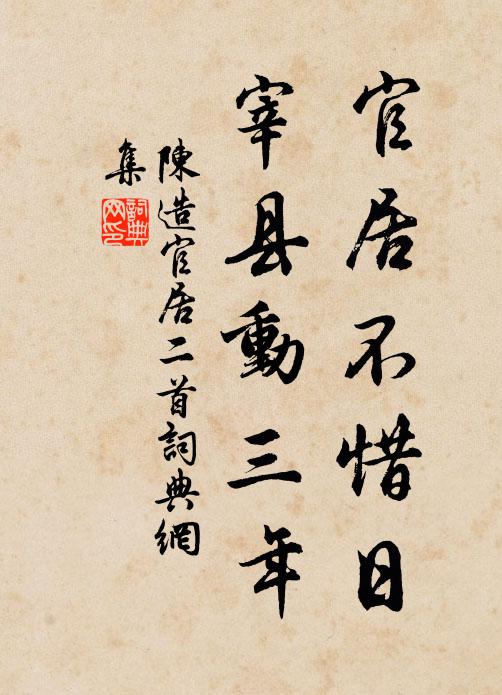 官居不惜日
宰县動三年
陳造官居二首詞典網
集
詞典网印